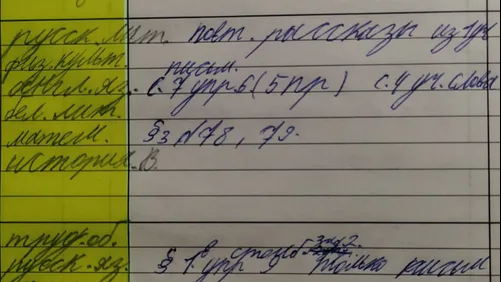 русск. лит. повт. рассказы изуч
физ. культ.
письм.
англ. яз. с. 7 упр 6 (5 пр) с. 4 уч. слова
бел. лит.
матем. §3 №78, 79.
история. В.
труд. об.
русск. яз. § 1. упр 9 только письм